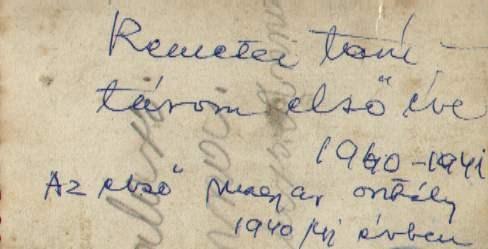 Remetei taní-
tárom első éve
1940-1941
Az első magyar osztály
1940/41 évben